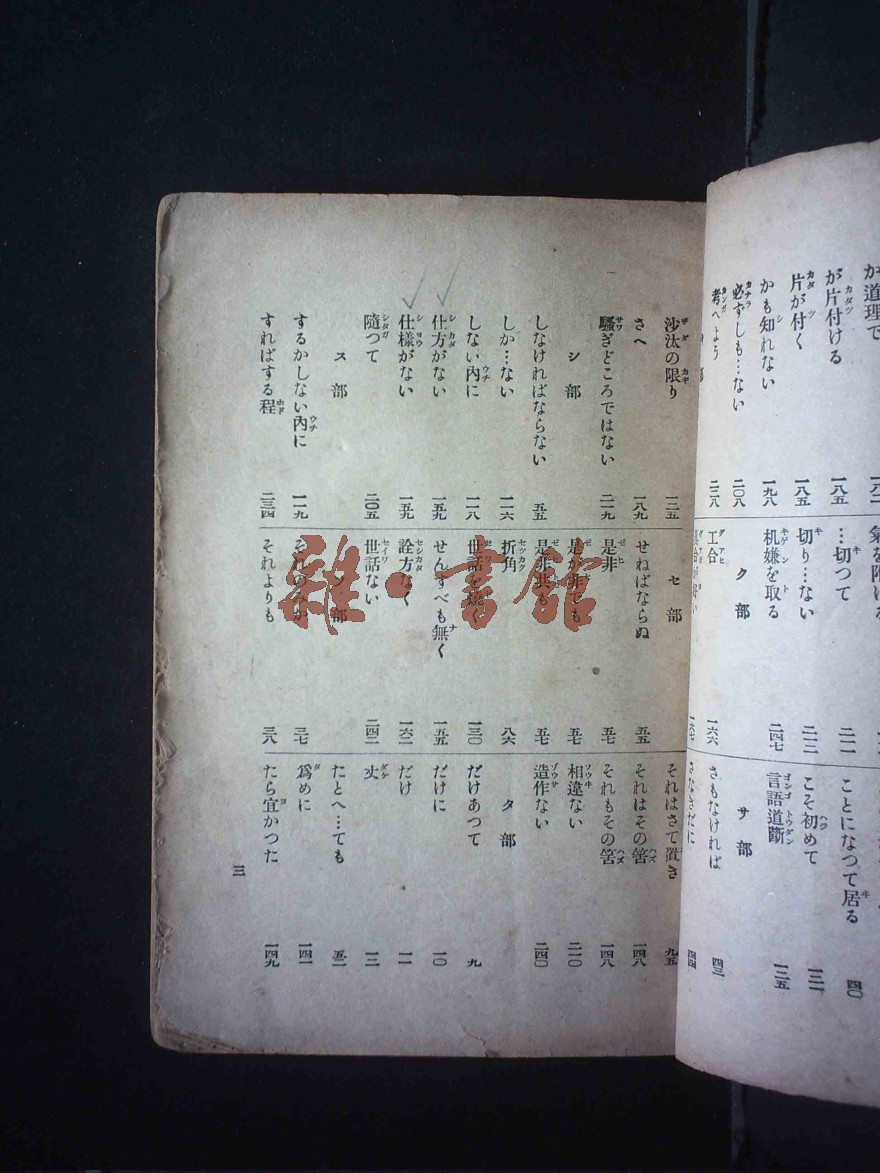 が片付ける 一八五
片が付く 一八五
かも知れない 一九八
必ずしも…ない 二〇八
考へよう 二三八
…切つて 二一一
切り…ない 二一二
机嫌を取る 二四七
ク部
工合 一六六
ことになつて居る 四〇
こそ初めて 三一
言語道斷 一三五
サ部
さもなければ 四三
さなきだに 四四
沙汰の限り 一三五
さへ 一八九
騷ぎどころではない 二一九
シ部
しなければならない 五五
しか…ない 一一六
しない內に 一一八
仕方がない 一五九
仕様がない 一五九
隨つて 二〇五
ス部
するかしない內に 一一九
すればする程 二三四
セ部
せねばならぬ 五五
是非 五七
是が非でも 五七
是非共も 五七
折角 八六
世話を燒く 一三〇
せんすべも無く 一五五
詮方なく 一六二
世話ない 二四二
ソ部
それのみか 三七
それよりも 三八
それはさて置き 九五
それはその筈 一四八
それもその筈 一四八
相違ない 二一〇
造作ない 二四〇
タ部
だけあつて 九
だけに 一〇
だけ 一一
丈 一二
たとへ…ても 五一
爲めに 一四一
たら宜かつた 一四九
三
雜·書館